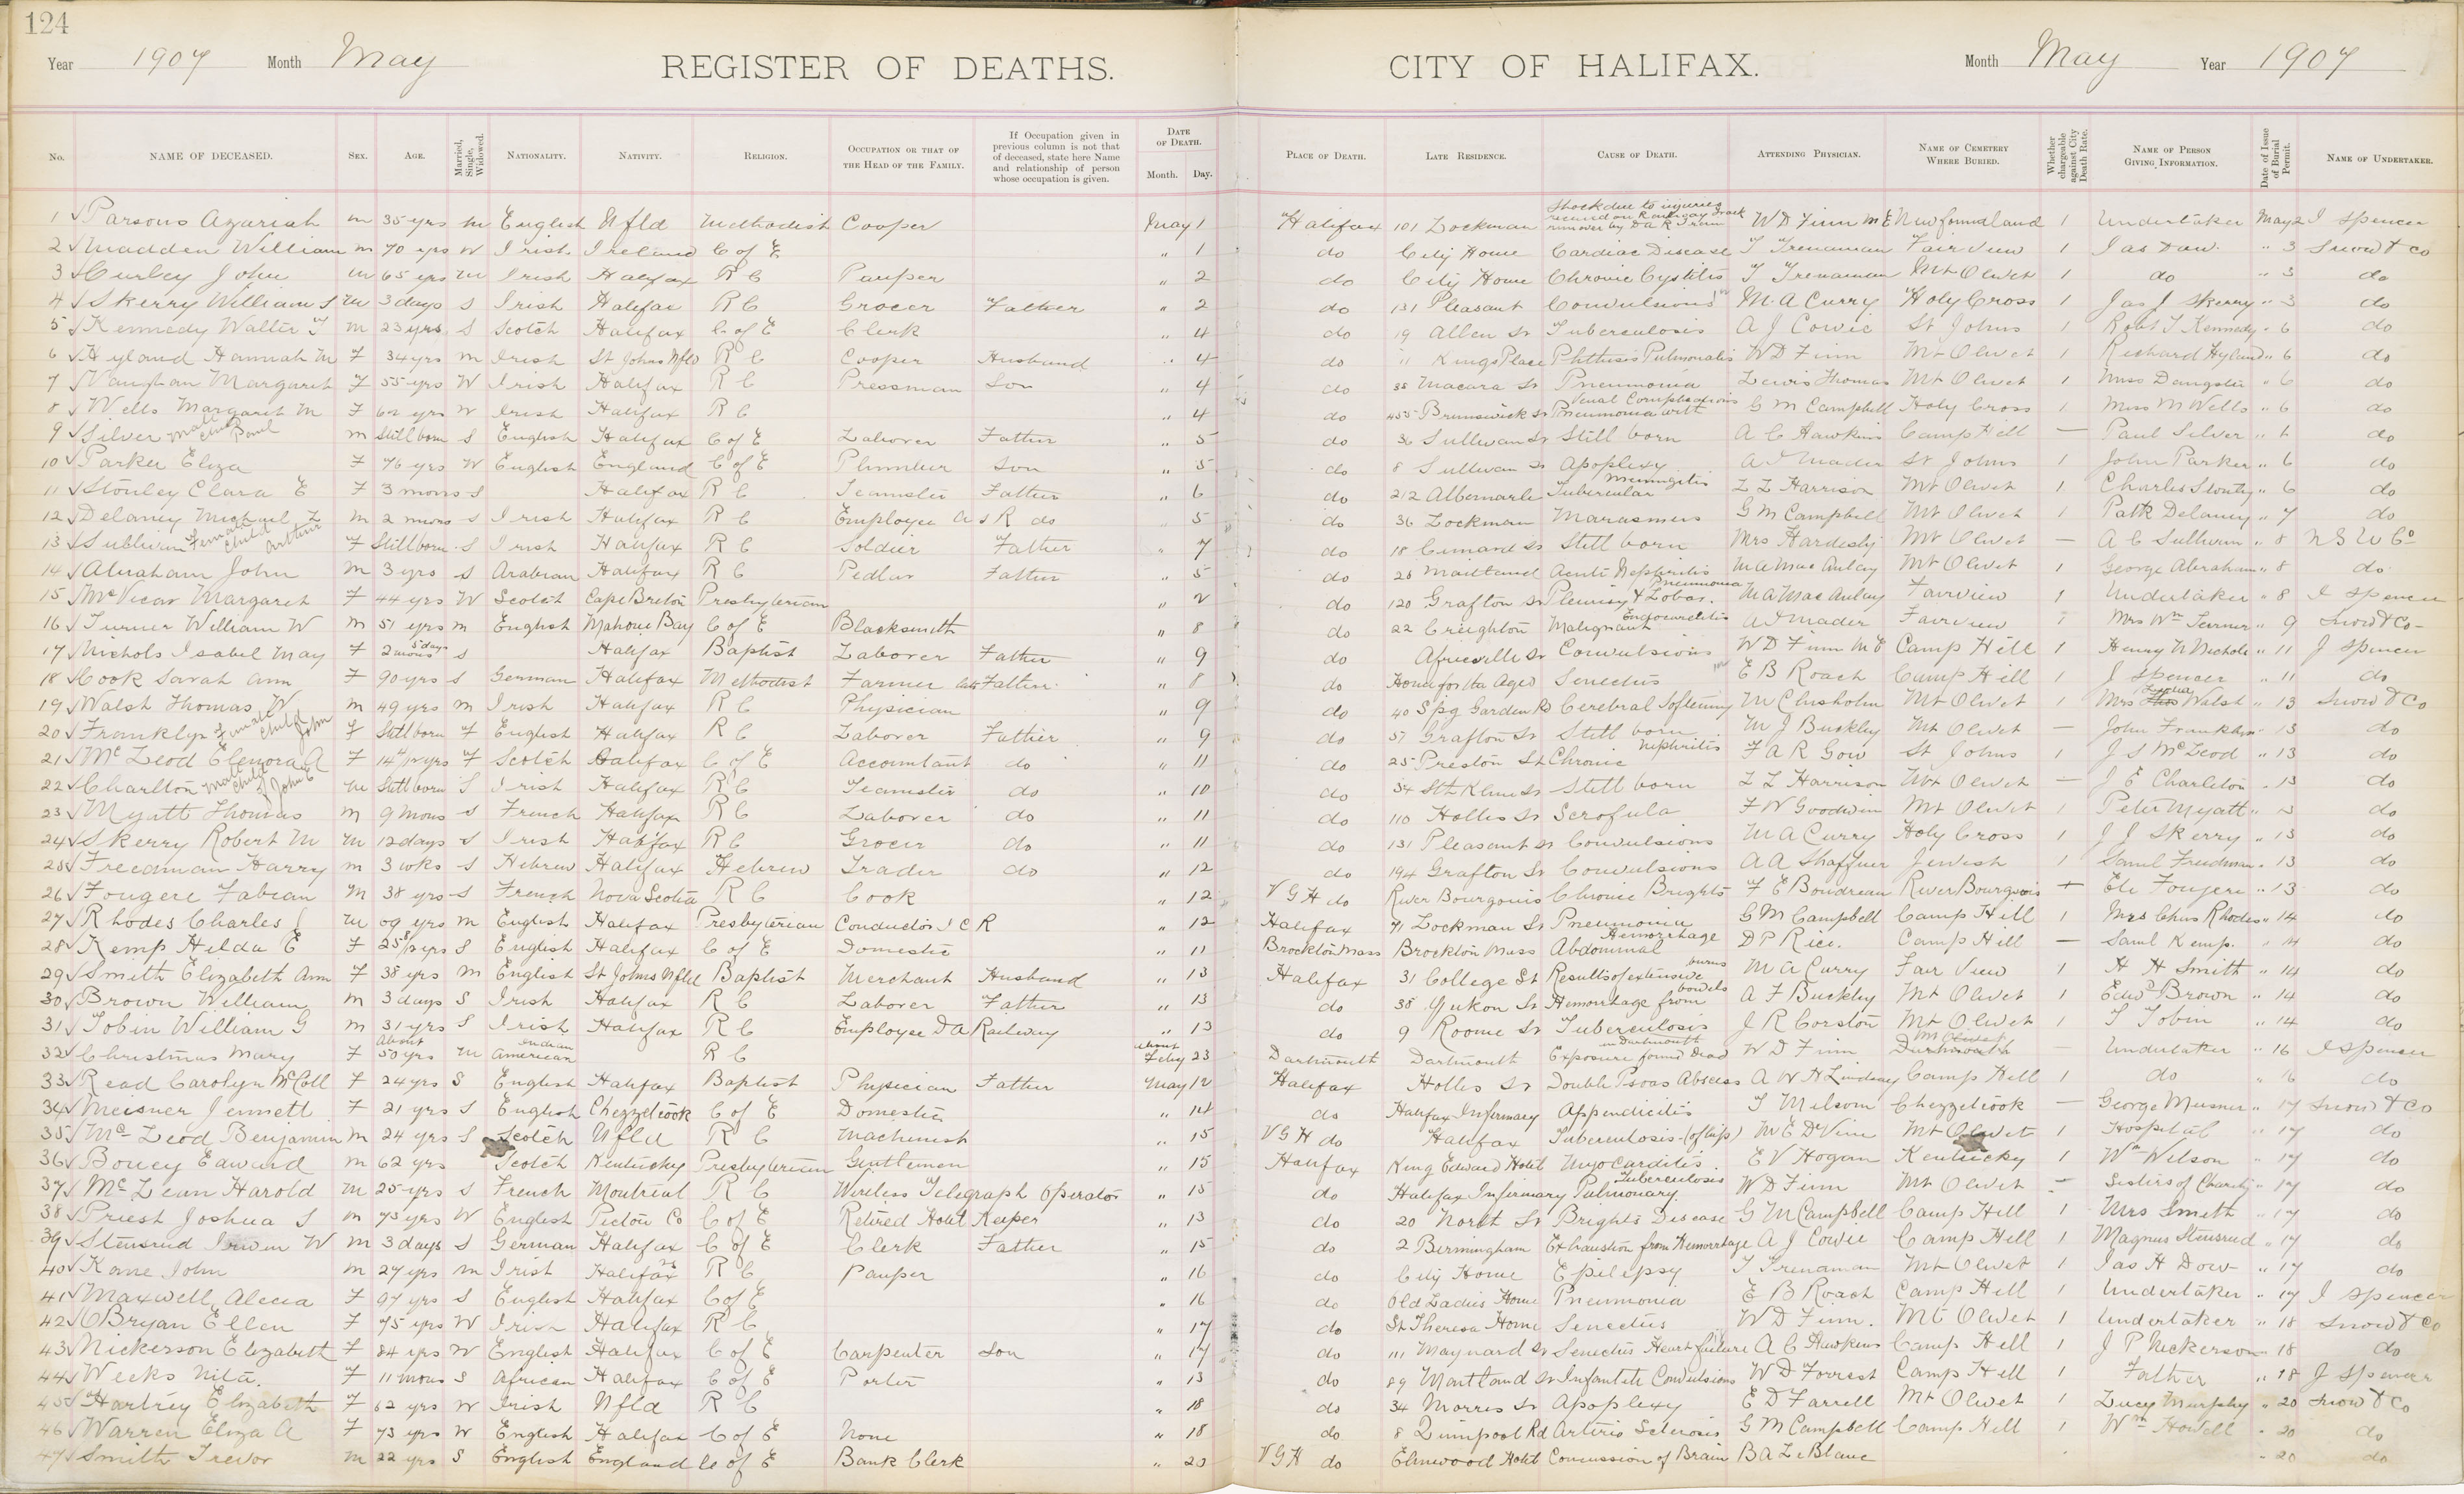 124
Year 1907 Month May REGISTER OF DEATHS. CITY OF HALIFAX. Month May Year 1907
No. NAME OF DECEASED. SEX. AGE. Married, Single, Widowed. NATIONALITY. NATIVITY. RELIGION. OCCUPATION OR THAT OF THE HEAD OF THE FAMILY. If Occupation given in previous column is not that of deceased, state here Name and relationship of person whose occupation is given. DATE OF DEATH. Month. Day. PLACE OF DEATH. LATE RESIDENCE. CAUSE OF DEATH. ATTENDING PHYSICIAN. NAME OF CEMETERY WHERE BURIED. Whether chargeable against City Death Rate. NAME OF PERSON GIVING INFORMATION. Date of Issue of Burial Permit. NAME OF UNDERTAKER.
1 Parsons Azariah m 35 yrs m English Nfld Methodist Cooper May 1 Halifax 101 Lockman Shock due to injuries received on Railway Track run over by D A R Train W D Finn M E Newfoundland 1 Undertaker May 2 J Spencer
2 Madden William m 70 yrs W Irish Ireland C of E " 1 do City Home Cardiac Disease T Trenaman Fair View 1 Jas Daw " 3 Snow & Co
3 Curley John m 65 yrs m Irish Halifax R C Pauper " 2 do City Home Chronic Cystitis T Trenaman Mt Olivet 1 do " 3 do
4 Skerry William J m 3 days S Irish Halifax R C Grocer Father " 2 do 131 Pleasant Convulsions M. A Curry Holy Cross 1 Jas J Skerry " 3 do
5 Kennedy Walter T m 23 yrs S Scotch Halifax C of E Clerk " 4 do 19 Allen St Tuberculosis A J Cowie St Johns 1 Robt T Kennedy " 6 do
6 Hyland Hannah M F 34 yrs m Irish St Johns Nfld R C Cooper Husband " 4 do 11 Kings Place Phthisis Pulmonalis W D Finn Mt Olivet 1 Richard Hyland " 6 do
7 Vaughan Margaret F 55 yrs W Irish Halifax R C Pressman Son " 4 do 38 Macara St Pneumonia Lewis Thomas Mt Olivet 1 Miss " 6 do
8 Wells Margaret M F 62 yrs W Irish Halifax R C " 4 do 455 Brunswick St Pneumonia with Complications G M Campbell Holy Cross 1 Miss M Wells " 6 do
9 Silver male child Paul m Still born S English Halifax C of E Laborer Father " 5 do 36 Sullivan St Still born A C Hawkins Camp Hill — Paul Silver " 6 do
10 Parker Eliza F 76 yrs W English England C of E Plumber Son " 5 do 8 Sullivan St Apoplexy A I Mader St Johns 1 John Parker " 6 do
11 Stonley Clara E F 3 mons S Halifax R C Teamster Father " 6 do 212 Albemarle Tubercular Meningitis L L Harrison Mt Olivet 1 Charles " 6 do
12 Delaney Michael L m 2 mons S Irish Halifax R C Employee A & R do " 5 do 36 Lockman Marasmus G M Campbell Mt Olivet 1 Patk Delaney " 7 do
13 Sullivan Female child Arthur F Still born S Irish Halifax R C Soldier Father " 7 do 18 Cunard St Still born Mrs Hardesty Mt Olivet — A C Sullivan " 8 N S U Co
14 Abraham John m 3 yrs S Arabian Halifax R C Pedlar Father " 5 do 28 Maitland Acute Nephritis M A MacAulay Mt Olivet 1 George Abraham " 8 do
15 McVicar Margaret F 44 yrs W Scotch Cape Breton Presbyterian " 2 do 120 Grafton St Pleurisy & Lobar Pneumonia M A MacAulay Fairview 1 Undertaker " 8 J Spencer
16 Turner William W m 51 yrs m English Mahone Bay C of E Blacksmith " 8 do 22 Creighton Malignant Endocarditis A I Mader Fairview 1 Mrs Wm Turner " 9 Snow & Co
17 Nichols Isabel May F 2 mons 5 days S Halifax Baptist Laborer Father " 9 do Africville St Convulsions W D Finn M E Camp Hill 1 Henry N Nichols " 11 J Spencer
18 Cook Sarah Ann F 90 yrs S German Halifax Methodist Farmer late Father " 8 do Home for the Aged Senectus E B Roach Camp Hill 1 J Spencer " 11 do
19 Walsh Thomas W m 49 yrs m Irish Halifax R C Physician " 9 do 40 Spg Garden Rd Cerebral Softening M Chisholm Mt Olivet 1 Mrs Walsh " 13 Snow & Co
20 Franklyn female child John F Still born F English Halifax R C Laborer Father " 9 do 57 Grafton St Still born M J Buckley Mt Olivet — John Franklyn " 13 do
21 McLeod Elenora A F F Scotch Halifax C of E Accountant do " 11 do 25 Preston St Chronic Nephritis F A R Gow St Johns 1 J S McLeod " 13 do
22 Charlton male child of John E m Still born S Irish Halifax R C Teamster do " 10 do 54 Sth Kline St Still born L L Harrison Mt Olivet — J E Charleton " 13 do
23 Myatt Thomas m 9 mons S French Halifax R C Laborer do " 11 do 110 Hollis St Scrofula F W Goodwin Mt Olivet 1 Peter Myatt " 13 do
24 Skerry Robert M m 12 days S Irish Halifax R C Grocer do " 11 do 131 Pleasant St Convulsions M A Curry Holy Cross 1 J J Skerry " 13 do
25 Freedman Harry m 3 wks S Hebrew Halifax Hebrew Trader do " 12 do 194 Grafton St Convulsions A A Shaffner Jewish 1 Saml Freedman " 13 do
26 Fougere Fabian M 38 yrs S French Nova Scotia R C Cook " 12 V G H do River Bourgouis Chronic Brights F E Boudreau River Bourgeois + Eli Fougere " 13 do
27 Rhodes Charles J m 09 yrs m English Halifax Presbyterian Conductor I C R " 12 Halifax 71 Lockman St Pneumonia G M Campbell Camp Hill 1 Mrs Chas Rhodes " 14 do
28 Kemp Hilda E F S English Halifax C of E Domestic " 11 Brockton Mass Brockton Mass Abdominal Hemorrhage D P Rice. Camp Hill — Saml Kemp. " 14 do
29 Smith Elizabeth Ann F 38 yrs m English St Johns Nfld Baptist Merchant Husband " 13 Halifax 31 College St Results of extensive burns M A Curry Fair View 1 H H Smith " 14 do
30 Brown William m 3 days S Irish Halifax R C Laborer Father " 13 do 38 Yukon St Hemorrhage from bowels A F Buckley Mt Olivet 1 Edwd Brown " 14 do
31 Tobin William G m 31 yrs S Irish Halifax R C Employee D A Railway " 13 do 9 Roome St Tuberculosis J R Corston Mt Olivet 1 T Tobin " 14 do
32 Christmas Mary F About 50 yrs m Indian American R C about Feby 23 Dartmouth Dartmouth Exposure found dead in Dartmouth W D Finn Dartmouth Mt Olivet — Undertaker " 16 J Spencer
33 Read Carolyn McColl F 24 yrs S English Halifax Baptist Physician Father May 12 Halifax Hollis St Double Psoas Abscess A W H Lindsay Camp Hill 1 do " 16 do
34 Meisner Jennett F 21 yrs S English Chezzetcook C of E Domestic " 14 do Halifax Infirmary Appendicitis T Milsom Chezzetcook — George Meisner " 17 Snow & Co
35 McLeod Benjamin m 24 yrs S Scotch Nfld R C Machinist " 15 V G H do Halifax Tuberculosis (of hip) M E DeVine Mt Olivet 1 Hospital " 17 do
36 Boucy Edward m 62 yrs Scotch Kentucky Presbyterian Gentleman " 15 Halifax King Edward Hotel Myocarditis. E V Hogan Kentucky 1 Wm Wilson " 17 do
37 McLean Harold m 25 yrs S French Montreal R C Wireless Telegraph Operator " 15 do Halifax Infirmary Pulmonary Tuberculosis W D Finn Mt Olivet — Sisters of Charity " 17 do
38 Priest Joshua S m 73 yrs W English Pictou Co C of E Retired Hotel Keeper " 13 do 20 North St Brights Disease G M Campbell Camp Hill 1 Mrs Smith " 17 do
39 Stensrud Irwin W m 3 days S German Halifax C of E Clerk Father " 15 do 2 Birmingham Exhaustion from Hemorrhage A J Cowie Camp Hill 1 Magnus Stensrud " 17 do
40 Kane John m 27 yrs m Irish Halifax R C Pauper " 16 do City Home Epilepsy T Trenaman Mt Olivet 1 Jas H Dow " 17 do
41 Maxwell Alecia F 97 yrs S English Halifax C of E " 16 do Old Ladies Home Pneumonia E B Roach Camp Hill 1 Undertaker " 17 J Spencer
42 O'Bryan Ellen F 75 yrs W Irish Halifax R C " 17 do St Theresa Home Senectus W D Finn. Mt Olivet 1 Undertaker " 18 Snow & Co
43 Nickerson Elizabeth F 84 yrs W English Halifax C of E Carpenter Son " 17 do 111 Maynard St Senectus Heart failure A C Hawkins Camp Hill 1 J P Nickerson " 18 do
44 Weeks Nita. F 11 mons S African Halifax C of E Porter " 13 do 89 Maitland St Infantile Convulsions W D Forrest Camp Hill 1 Father " 18 J Spencer
45 Hartrey Elizabeth F 62 yrs W Irish Nfld R C " 18 do 34 Morris St Apoplexy E D Farrell Mt Olivet 1 Lucy Murphy " 20 Snow & Co
46 Warren Eliza A F 73 yrs W English Halifax C of E None " 18 do 8 Quinpool Rd Arterio Sclerosis G M Campbell Camp Hill 1 Wm Howell " 20 do
47 Smith Trevor m 22 yrs S English England C of E Bank Clerk " 20 V G H do Elmwood Hotel Concussion of Brain B A LeBlanc " 20 do